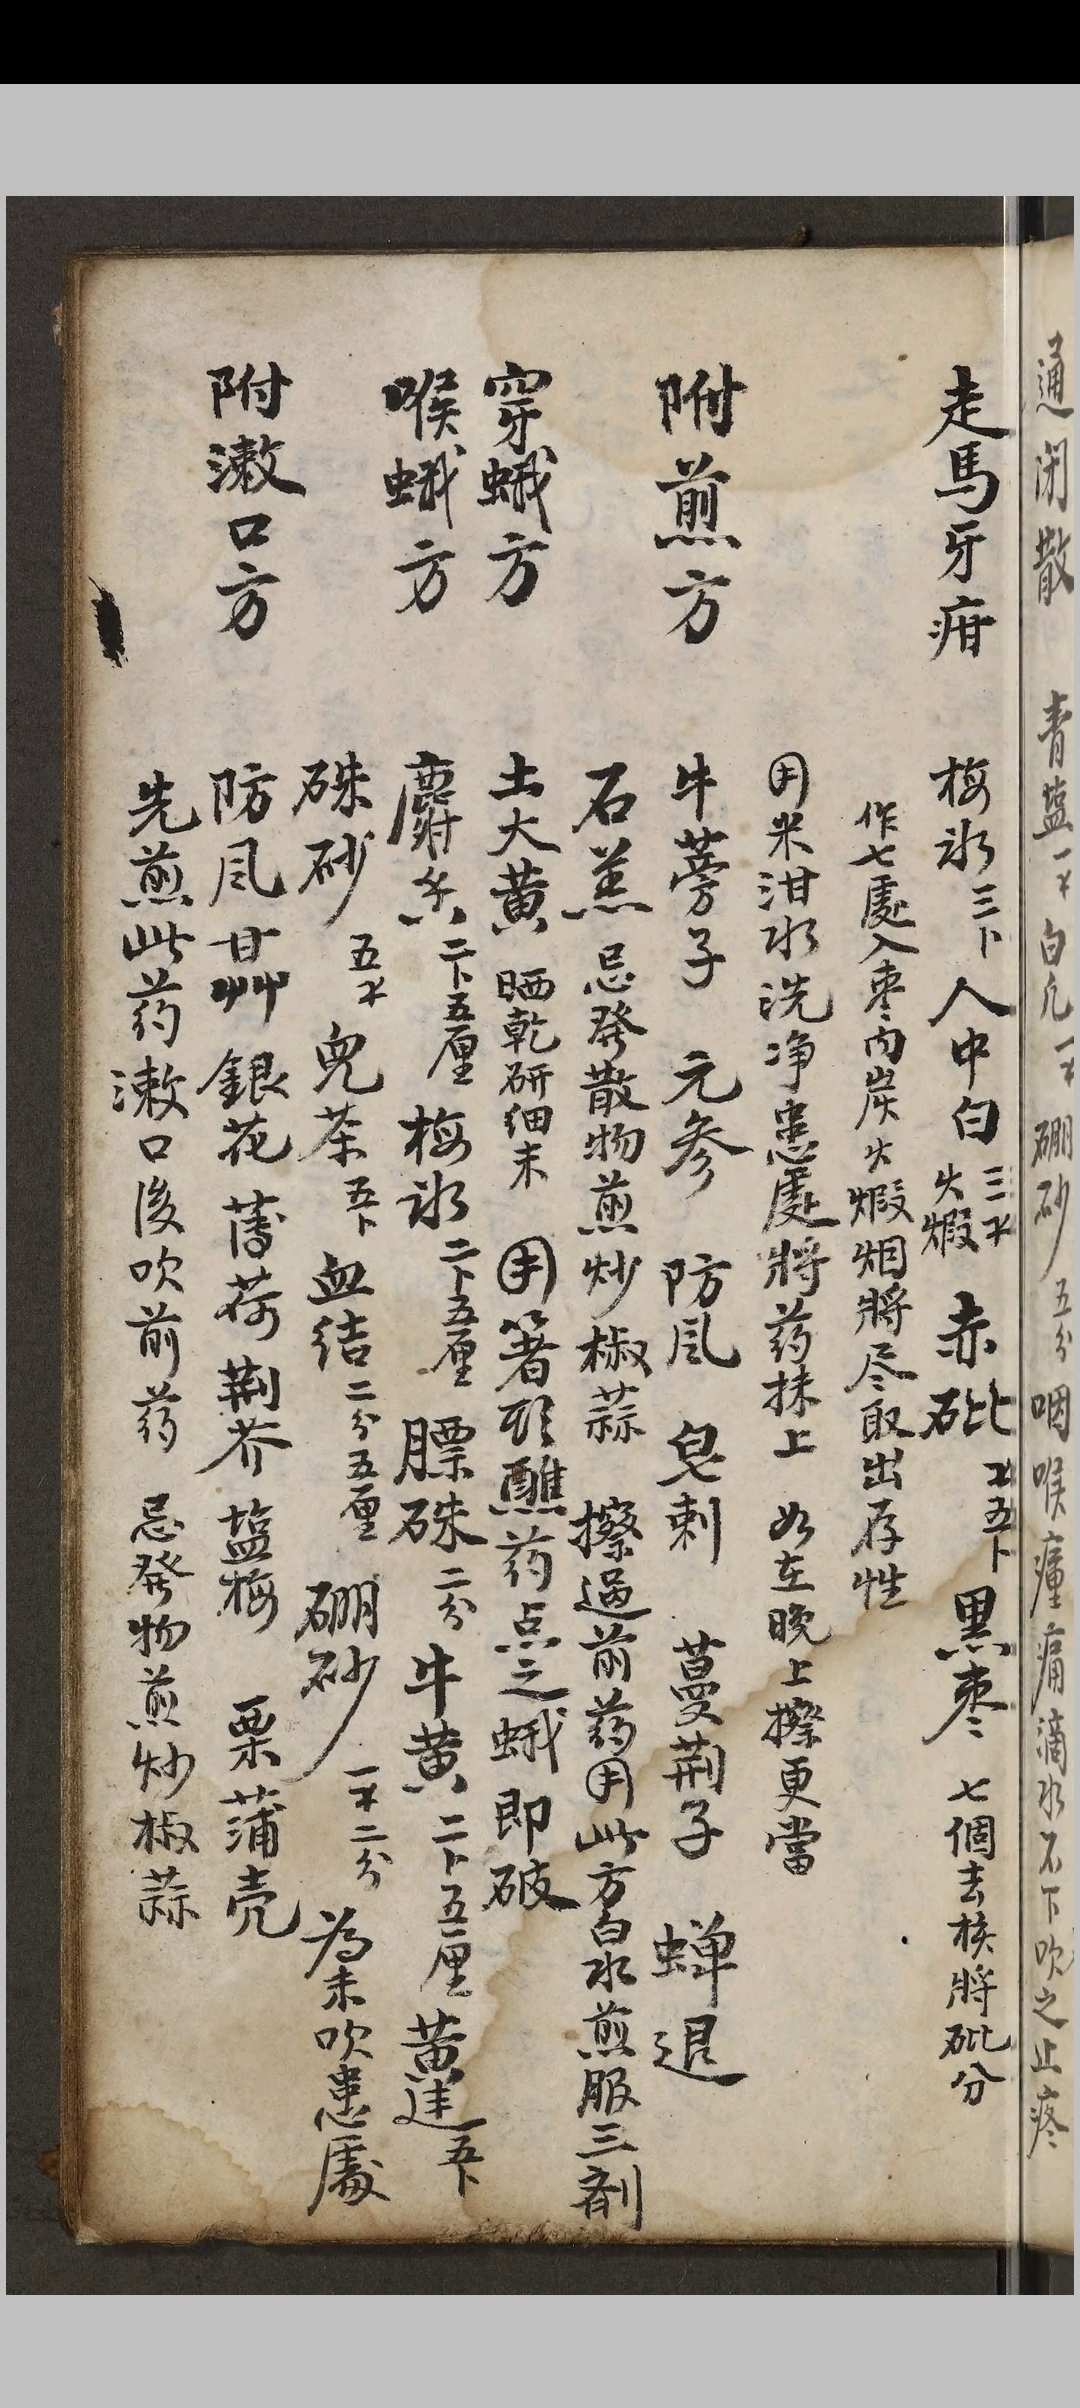 通闭散 青盐一才 白凡一才 硼砂五分 咽喉瘇痛滴水不下吹之止疼
走馬牙疳 梅冰三卜 人中白三才火煆 赤砒才五卜 黑枣七個去核將砒分
作七處入枣内炭火煆烟將尽取出存性
用米泔水洗净患處將药抹上 如在晚上擦更當
附煎方 牛蒡子 元参 防风 皂刺 蔓荆子 蝉退
石羔 忌發散物煎炒椒蒜 擦過前药用此方白水煎服三剤
穿蛾方 土大黄 晒乾研细末 用箸頭醮药点之蛾即破
喉蛾方 麝香二卜五厘 梅冰二卜五厘 膘硃二分 牛黄二卜五厘 黄連五卜
硃砂五才 兒茶五卜 血结二分五厘 硼砂一才二分 為末吹患處
附漱口方 防风 甘艸 銀花 薄荷 荆芥 塩梅 粟蒲壳
先煎此药漱口後吹前药 忌發物煎炒椒蒜